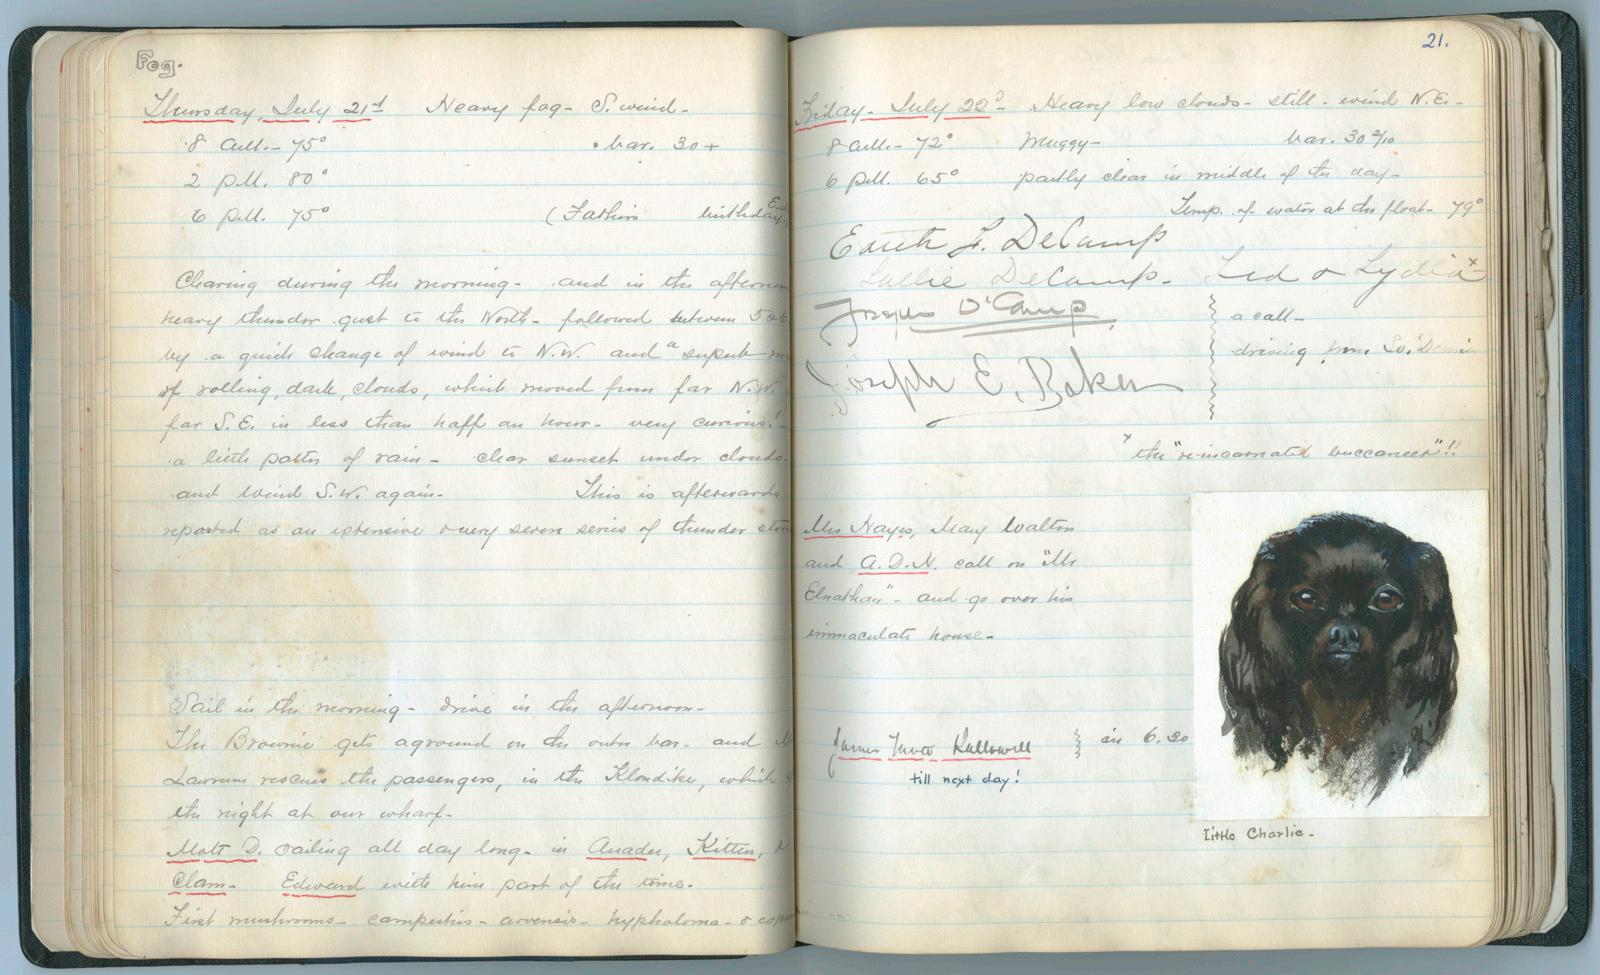 Fog.
Thursday, July 21st Heavy fog - S. wind -
8 a.m. - 75° bar. 30 +
2 p.m. 80°
6 p.m. 75° (Father's birthday
Clearing during the morning - and in the
heavy thunder gust to the North - followed between 5 & 6
by a quick change of wind to N.W. and a superb
of rolling, dark, clouds, which moved from far N.W.
far S.E. in less than half an hour - very curious!
a little patter of rain - clear sunset under clouds -
and wind S.W. again. This is afterwards
reported as an extensive & very severe series of thunder
Sail in the morning - drive in the afternoon -
The Brownie gets aground on the outer bar - and
rescues the passengers, in the Klondike, which
the night at our wharf -
Matt D. sailing all day long - in Anader, Kitten,
Clam. Edward with him part of the time.
First mushrooms - campestris - arvensis - hypholoma - &
21.
Friday - July 22d Heavy low clouds - still - wind N.E. -
8 a.m. - 72° Muggy - bar. 30 2/10
6 p.m. 65° partly clear in middle of the day -
Temp. of water at the float - 79°
Edith F. DeCamp
Sallie DeCamp - Ted & Lydia x
Joseph DeCamp. a call -
driving from So.
Joseph E. Baker
x the "reincarnated buccaneer"!!
Mrs Hayes, Mary Walton
and A.D.N. call on "Mr
Elnathan" - and go over his
immaculate house -
James in 6.30
till next day!
Little Charlie -